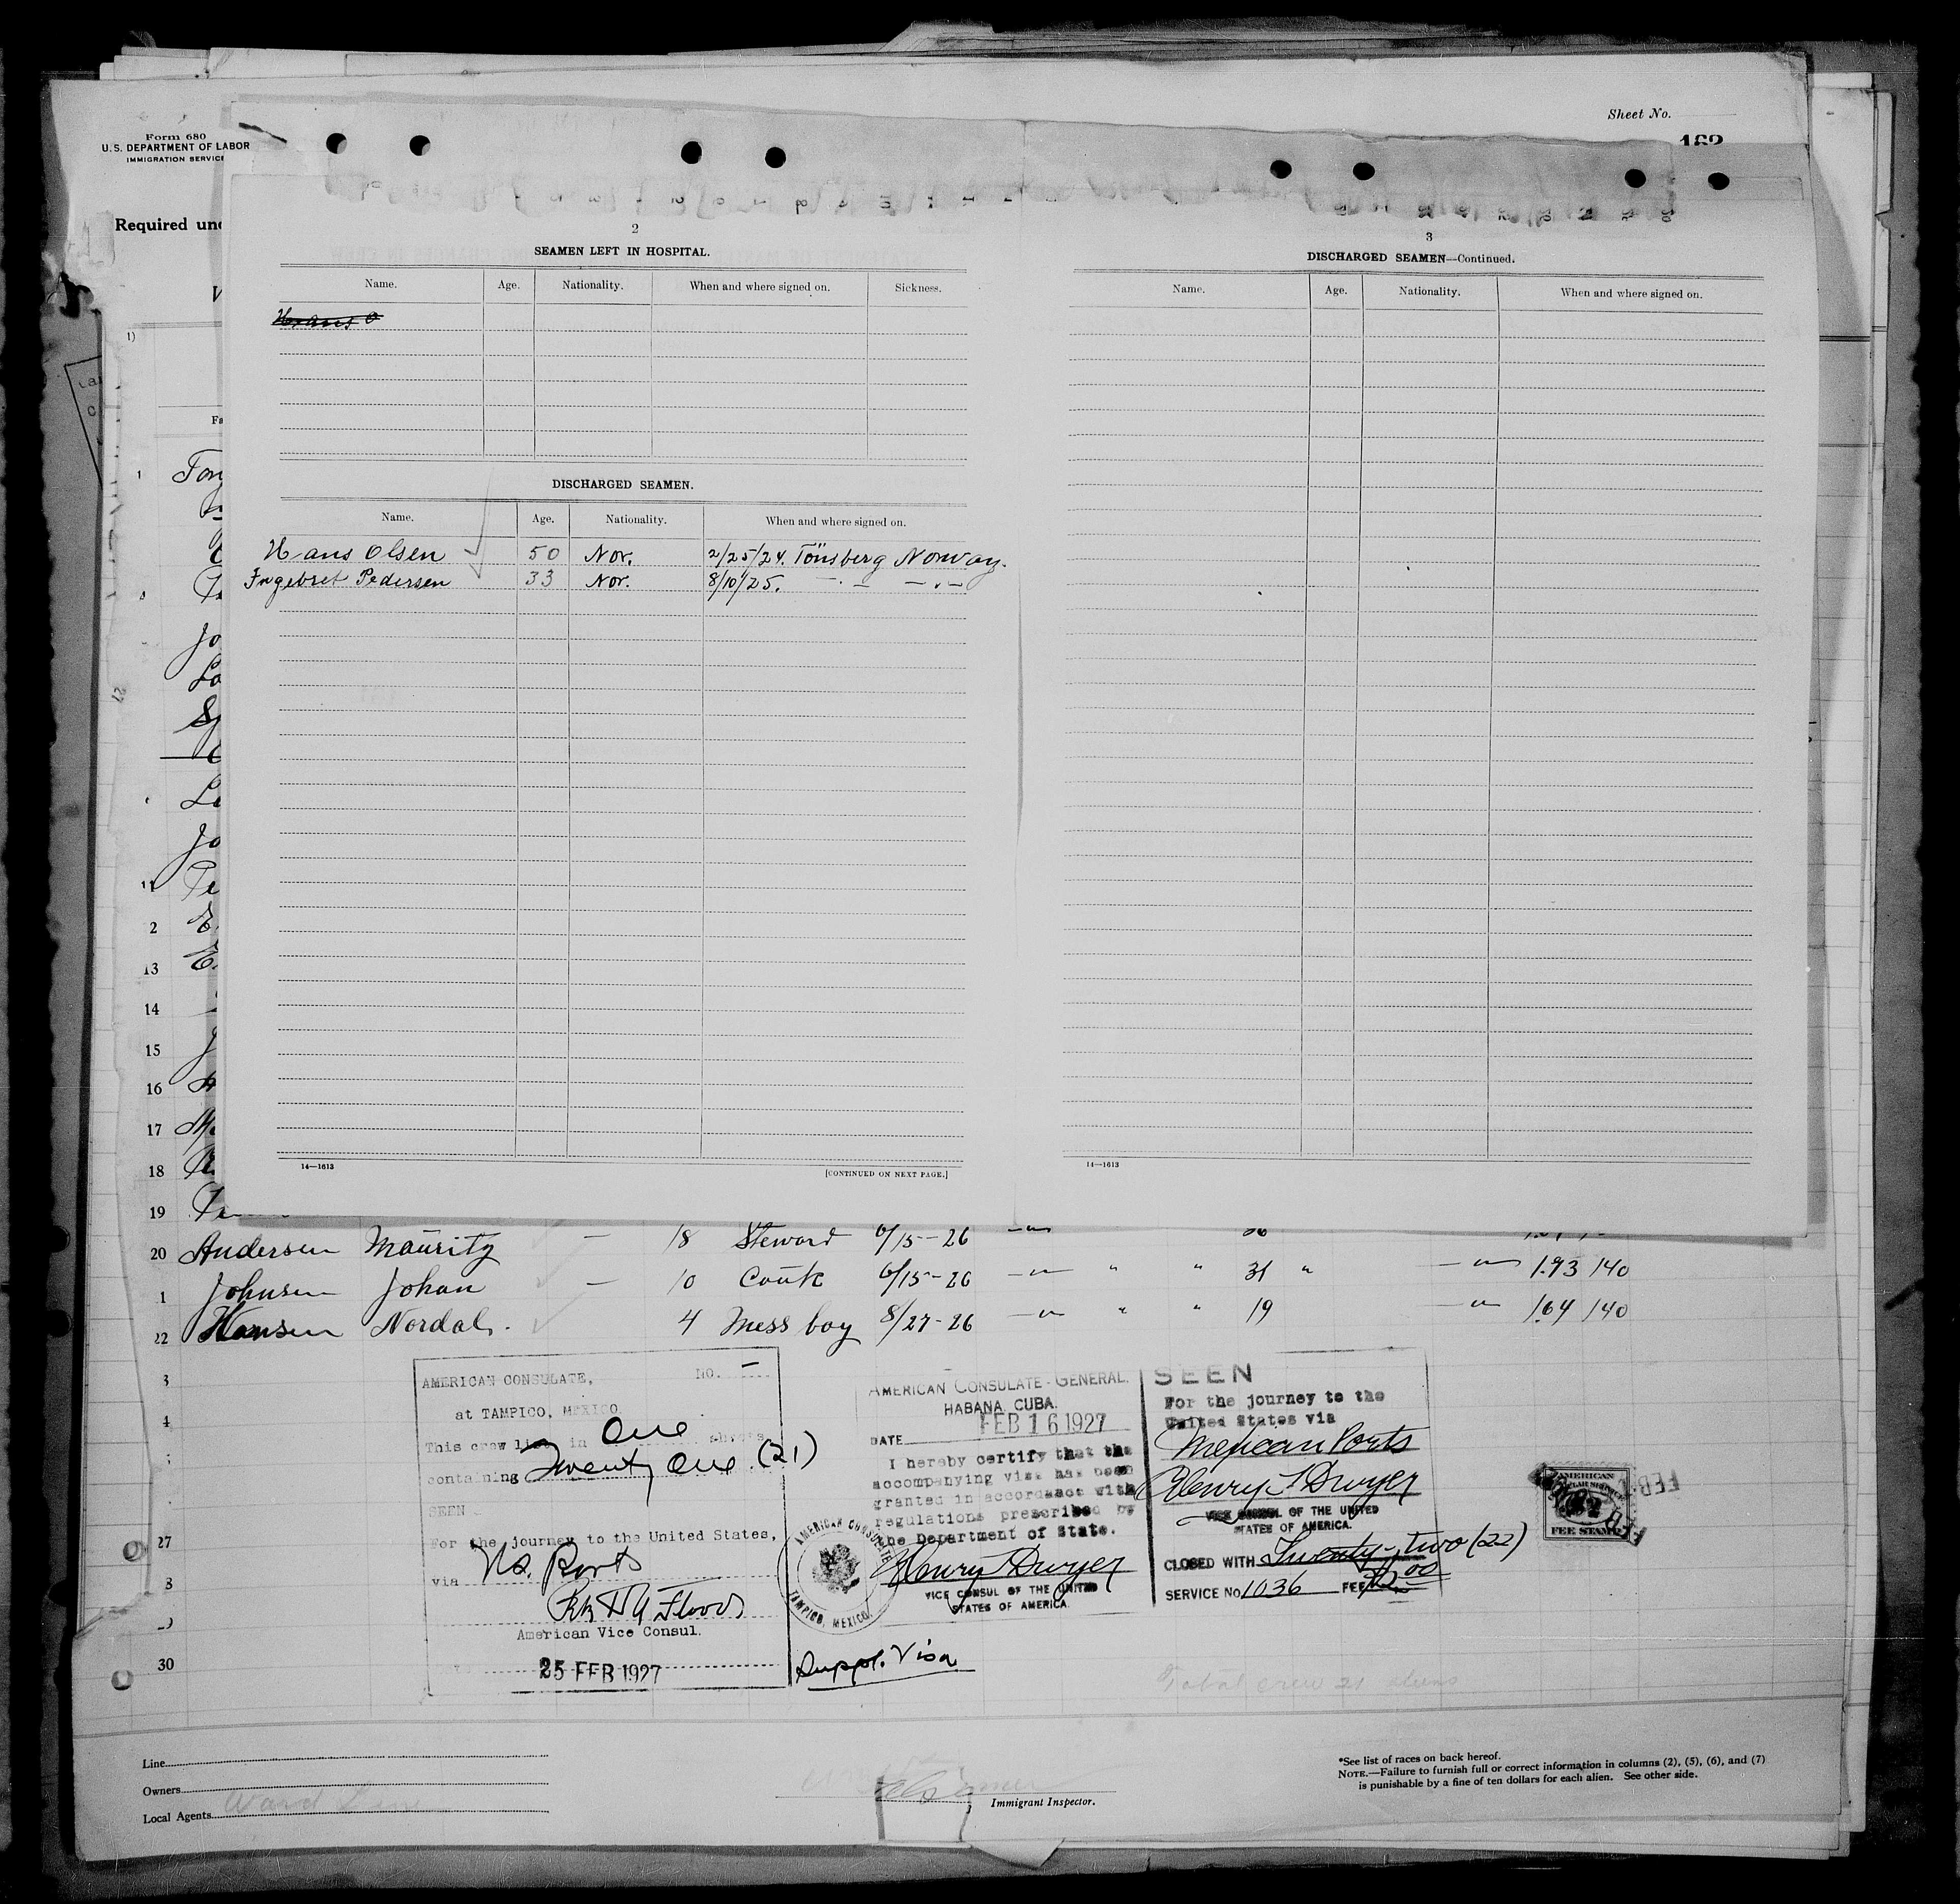 Form 680
U. S. DEPARTMENT OF LABOR
IMMIGRATION SERVICE
Sheet No.
Required und
2
SEAMEN LEFT IN HOSPITAL.
Name. Age. Nationality. When and where signed on. Sickness.
Hans O
DISCHARGED SEAMEN.
Name. Age. Nationality. When and where signed on.
Hans Olsen 50 Nor. 2/25/24. Tönsberg Norway.
Ingebret Pedersen 33 Nor. 8/10/25. —·— —·—
14—1613
[CONTINUED ON NEXT PAGE.]
3
DISCHARGED SEAMEN—Continued.
Name. Age. Nationality. When and where signed on.
14—1613
1)
Fa
1 Ton
Jo
Lo
Jo
11 Pe
2
13
14
15
16
17
18
19
20 Andersen Mauritz — 18 Steward 6/15-26
1 Johnsen Johan — 10 Cook 6/15-26 —"— " " 31 " —"— 1.73 140
22 Hansen Nordal. 4 Mess boy 8/27-26 —"— " " 19 —"— 1.64 140
3
4
27
8
30
AMERICAN CONSULATE, NO. —
at TAMPICO, MEXICO
This crew list in One sheets
containing Twenty One. (21)
SEEN
For the journey to the United States,
via US. Ports
American Vice Consul.
25 FEB 1927
AMERICAN CONSULATE TAMPICO, MEXICO.
AMERICAN CONSULATE-GENERAL.
HABANA, CUBA.
DATE FEB 16 1927
I hereby certify that the
accompanying visa has been
granted in accordance with
regulations prescribed by
the Department of State.
Henry T Dwyer
VICE CONSUL OF THE UNITED
STATES OF AMERICA.
Suppl. Visa
SEEN
For the journey to the
United States via
Mexican Ports
Henry T Dwyer
VICE CONSUL OF THE UNITED
STATES OF AMERICA.
CLOSED WITH Twenty-two (22)
SERVICE No 1036 FEE $2.00
AMERICAN
CONSULAR SERVICE
FEE STAMP
FEB
Total crew 21 aliens
Line
Owners
Local Agents Ward Line
Immigrant Inspector.
*See list of races on back hereof.
NOTE.—Failure to furnish full or correct information in columns (2), (5), (6), and (7)
is punishable by a fine of ten dollars for each alien. See other side.